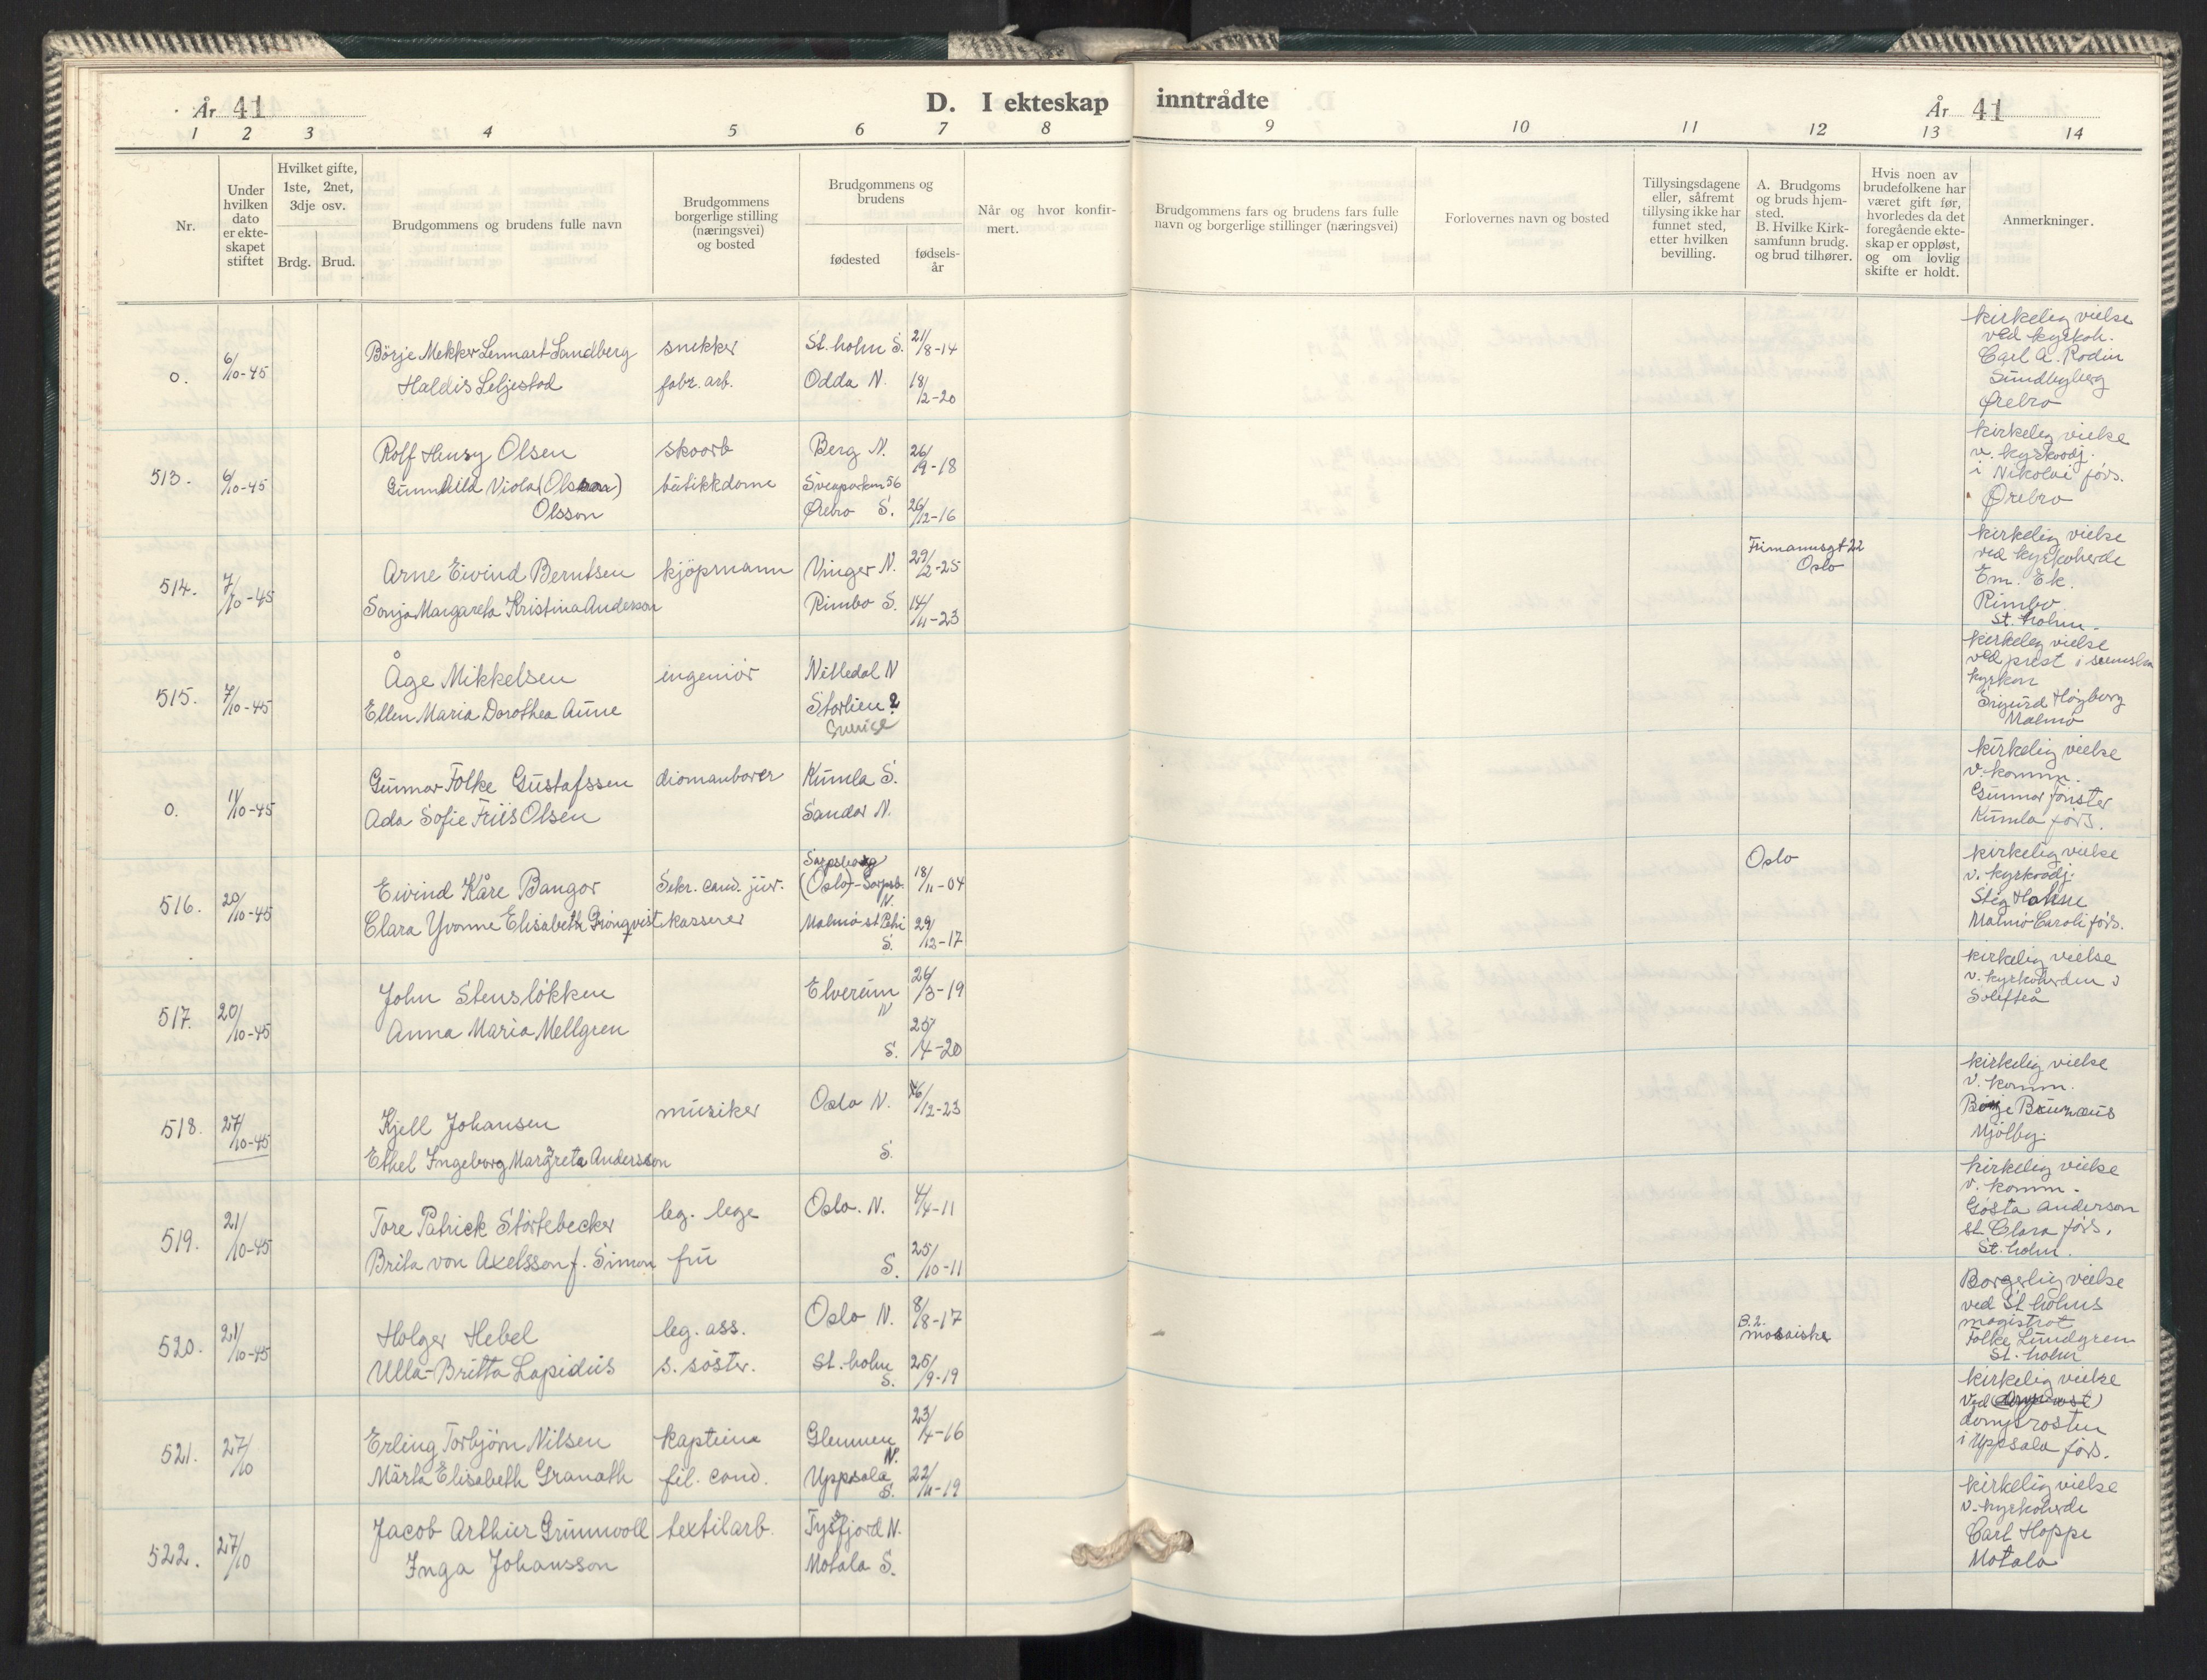 År 41
D. I ekteskap inntrådte
År 41
1 2 3 4 5 6 7 8 9 10 11 12 13 14
Nr.
Under hvilken dato er ekte-skapet stiftet
Hvilket gifte, 1ste, 2net, 3dje osv.
Brdg. Brud.
Brudgommens og brudens fulle navn
Brudgommens borgerlige stilling (næringsvei) og bosted
Brudgommens og brudens
fødested
fødsels-år
Når og hvor konfir-mert.
Brudgommens fars og brudens fars fulle navn og borgerlige stillinger (næringsvei)
Forlovernes navn og bosted
Tillysingsdagene eller, såfremt tillysing ikke har funnet sted, etter hvilken bevilling.
A. Brudgoms og bruds hjem-sted.
B. Hvilke Kirk-samfunn brudg. og brud tilhører.
Hvis noen av brudefolkene har været gift før, hvorledes da det foregående ekte-skap er oppløst, og om lovlig skifte er holdt.
Anmerkninger.
0. 6/10-45
Börje Lennart Sandberg snekker St. holm S. 21/8-14
Haldis fabr. arb. Odda N. 18/12-20
kirkelig vielse
ved kyrkoh.
Carl A. Rodin
Sundbyberg
Ørebro
513. 6/10-45
Rolf Olsen Berg N.
Viola
Olsson
Sveaparken 56
Ørebro S. 26/12-16
kirkelig vielse
v. kyrkoadj.
i Nikolai førs.
Ørebro
514. 7/10-45
Arne Eivind Berntsen kjöpmann Vinger N. 29/2-25
Sonja Margareta Kristina Andersson Rimbo S. 14/11-23
Frimannsgt 22
Oslo
kirkelig vielse
ved kyrkoherde
Em. Ek.
Rimbo
St. holm.
515. 7/10-45
Åge Mikkelsen ingeniör Nittedal N
Ellen Maria Dorothea Aune Storlien ?
Sverige
kirkelig vielse
ved prest i svenska
kyrkan
Sigurd Högberg
Malmö
0. 11/10-45
Gunnar Folke Gustafssen diamantborer Kumla S.
Ada Sofie Friis Olsen Sandar N.
kirkelig vielse
v. komm.
Gunnar
Kumla förs.
516. 20/10-45
Eivind Kåre Bangor Sekr. cand. jur. Sarpsborg
(Oslo)-Sarpsb. N. 18/11-04
Clara Yvonne Elisabeth Grönqvist kasserer Malmö St Petri S. 29/12-17
Oslo
kirkelig vielse
v. kyrkoadj.
Stig
Malmö Caroli förs.
517. 20/10-45
John Stenslökken Elverum N 26/3-19
Anna Maria Mellgren S. 25/4-20
kirkelig vielse
v. kyrkoherden i
Sollefteå
518. 27/10-45
Kjell Johansen musiker Oslo N. 16/12-23
Ethel Ingeborg Margreta Andersson S.
kirkelig vielse
v. komm.
Mjölby.
519. 21/10-45
Tore Patrick Störtebecker leg. lege Oslo. N. 4/4-11
Brita von Axelsson f. Simon fru S. 25/10-11
kirkelig vielse
v. komm.
Gösta Anderson
st. Clara förs.
St. holm.
520. 21/10-45
Holger Hebel leg. ass. Oslo N. 8/8-17
Ulla-Britta Lapidus s. söster. St. holm S. 25/9-19
B. 2.
mosaiske
Borgerlig vielse
ved St. holms
magistrat
Folke Lundgren
St. holm
521. 27/10
Erling Torbjörn Nilsen kaptein Glemmen N. 23/4-16
Märta Elisabeth Granath fil. cand. Uppsala S. 22/11-19
kirkelig vielse
ved
domprosten
i Uppsala förs.
522. 27/10
Jacob Arthur Grunnvoll textilarb. Tysfjord N.
Inga Johansson Motala S.
kirkelig vielse
v. kyrkoherde
Carl Hoppe
Motala